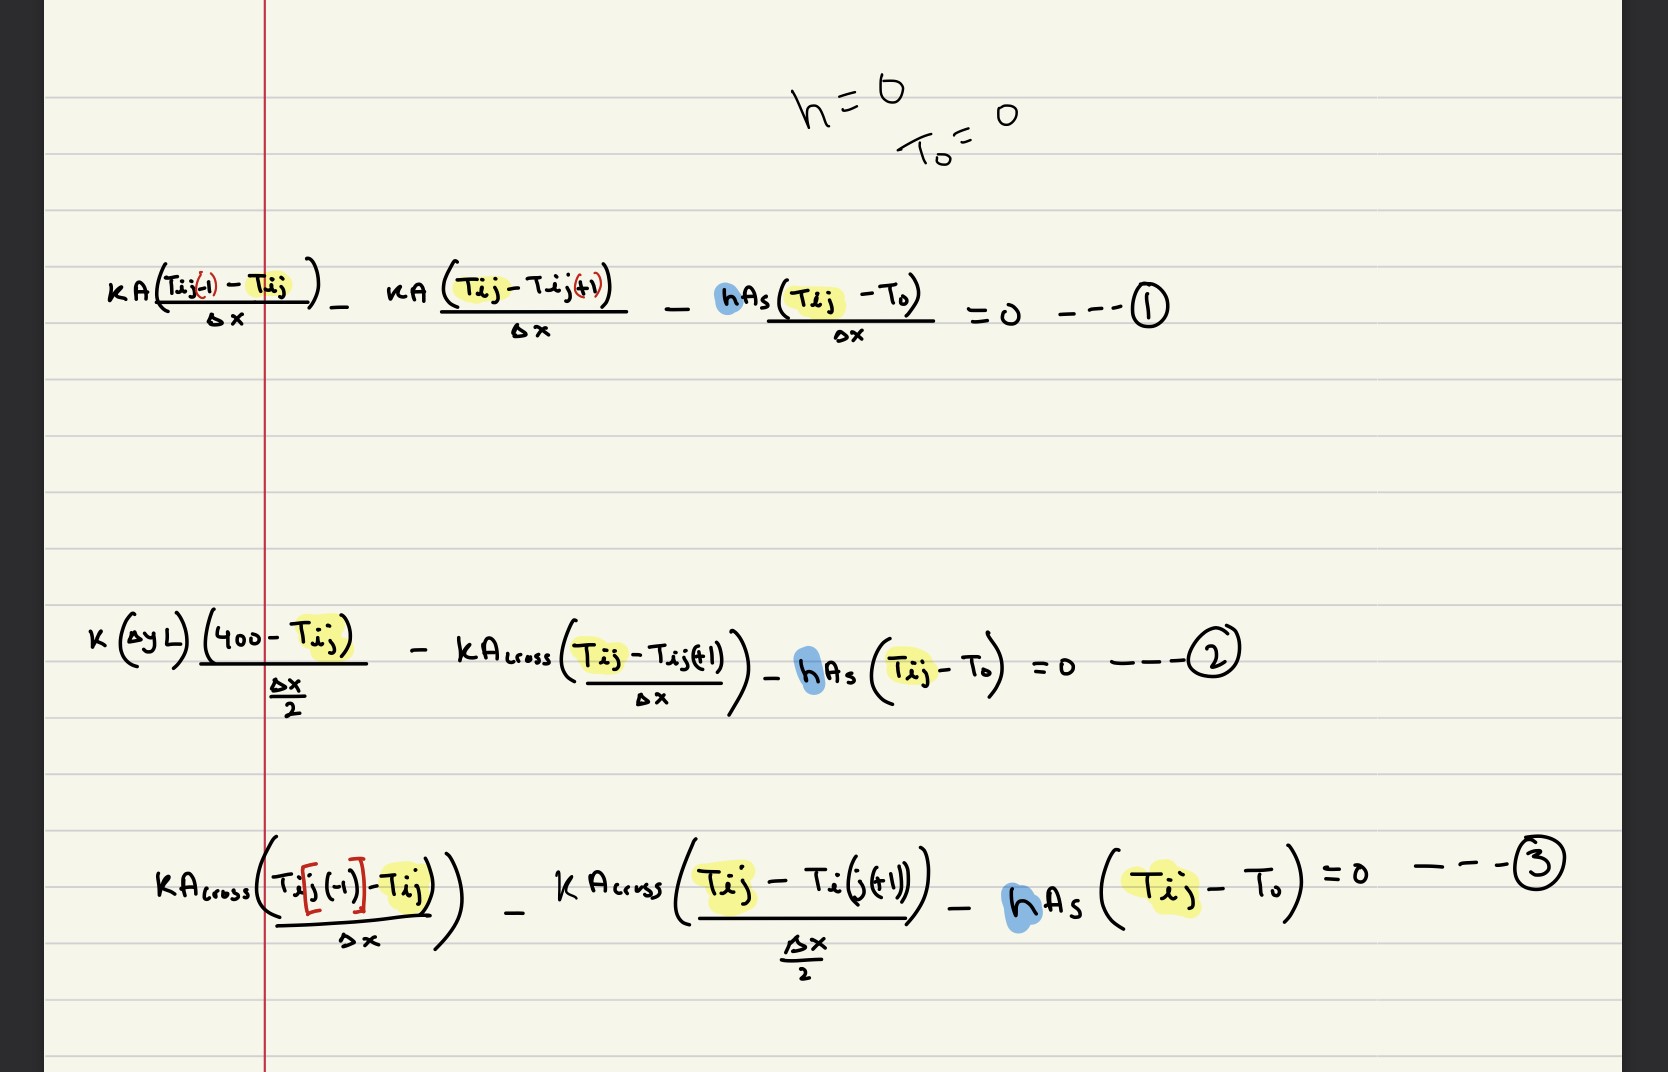 h = 0
T₀ = 0
KA(Tij(-1) - Tij)/Δx - KA(Tij - Tij(+1))/Δx - hAs(Tij - T₀)/Δx = 0 ---①
K(Δy L)(400 - Tij)/(Δx/2) - KAcross(Tij - Tij(+1)/Δx) - hAs(Tij - T₀) = 0 ---②
KAcross(Ti[j(-1)] - Tij)/Δx) - KAcross(Tij - Ti(j(+1))/(Δx/2)) - hAs(Tij - T₀) = 0 ---③